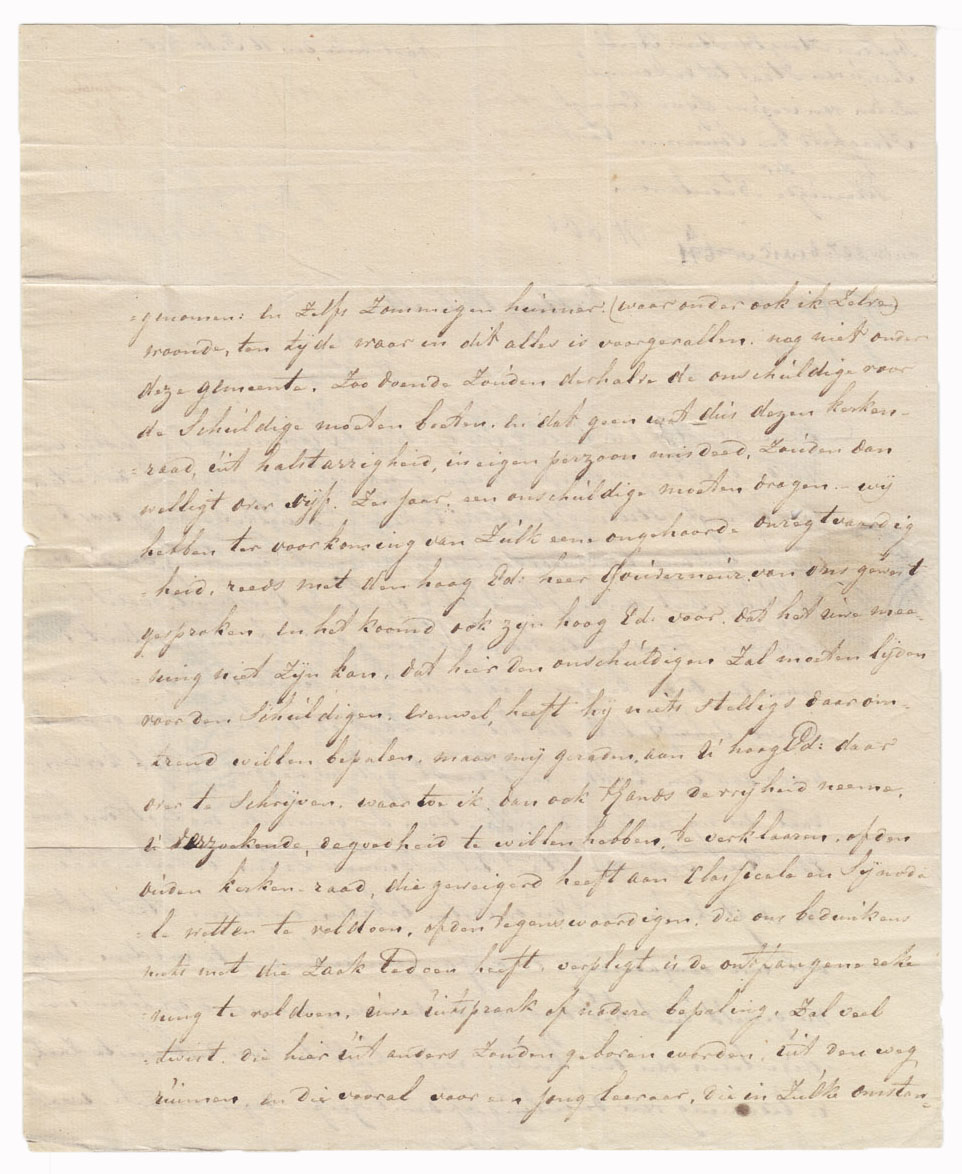 -genomen: en Zelfs Zommigen hunner (waar onder ook ik Zelve)
woonde, ten tyde waar in dit alles is voorgevallen. nog niet onder
deze gemeente. Zoo doende Zouden derhalve de onschuldige voor
de Schuldige moeten boeten. en dat geen wat dus dezen kerken-
-raad, uit halstarrigheid, in eigen perzoon misdeed, Zouden dan
welligt over vyf. Zes jaar, een onschuldige moeten dragen. - wy
hebben ter voorkoming van Zulk eene ongehoorde onregtvaardig
-heid, reeds met den hoog Ed: heer Gouverneur van ons gewest
gesproken. en het koomd ook zyn hoog Ed: voor. dat het uwe mee-
-ning niet Zyn kan, dat hier den onschuldigen Zal moeten lyden
voor den Schuldigen. evenwel, heeft hy niets stelligs daar om-
-trend willen bepalen. maar my geraden, aan U hoog Ed: daar
over te Schryven. waar toe ik dan ook thands de vryheid neeme,
U verzoekende, de goedheid te willen hebben, te verklaaren, of den
ouden kerken-raad, die geweigerd heeft aan Classicale en Synoda
-le wetten te voldoen, of den tegenswoordigen. die ons bedunkens
niets met die Zaak te doen heeft, verpligt is de ontfangene reke
-ning te voldoen, uwe uitspraak of nadere bepaling. Zal veel
twist, die hier uit anders Zouden geboren worden, uit den weg
ruimen. en die vooral voor een jong leeraar, die in Zulke omstan-